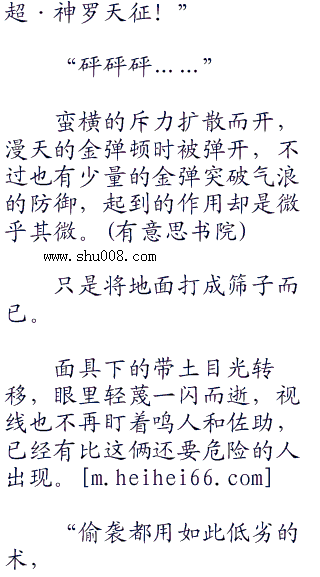 超·神罗天征！”
“砰砰砰……”
蛮横的斥力扩散而开，
漫天的金弹顿时被弹开，不
过也有少量的金弹突破气浪
的防御，起到的作用却是微
乎其微。(有意思书院)
www.shu008.com
只是将地面打成筛子而
已。
面具下的带土目光转
移，眼里轻蔑一闪而逝，视
线也不再盯着鸣人和佐助，
已经有比这俩还要危险的人
出现。[m.heihei66.com]
“偷袭都用如此低劣的
术，